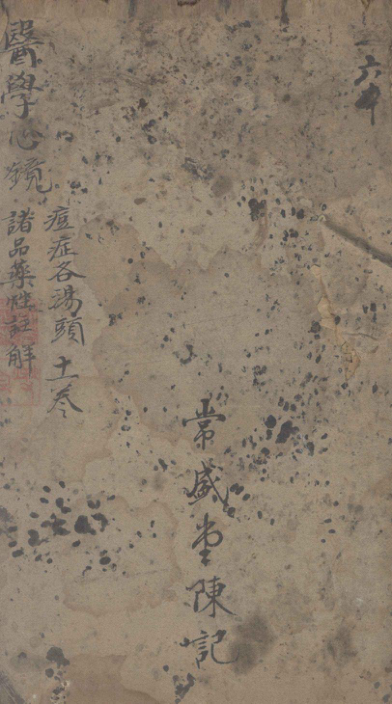 六本
醫學心鏡
痘症各湯頭 十一卷
諸品藥性註解
常盛堂陳記